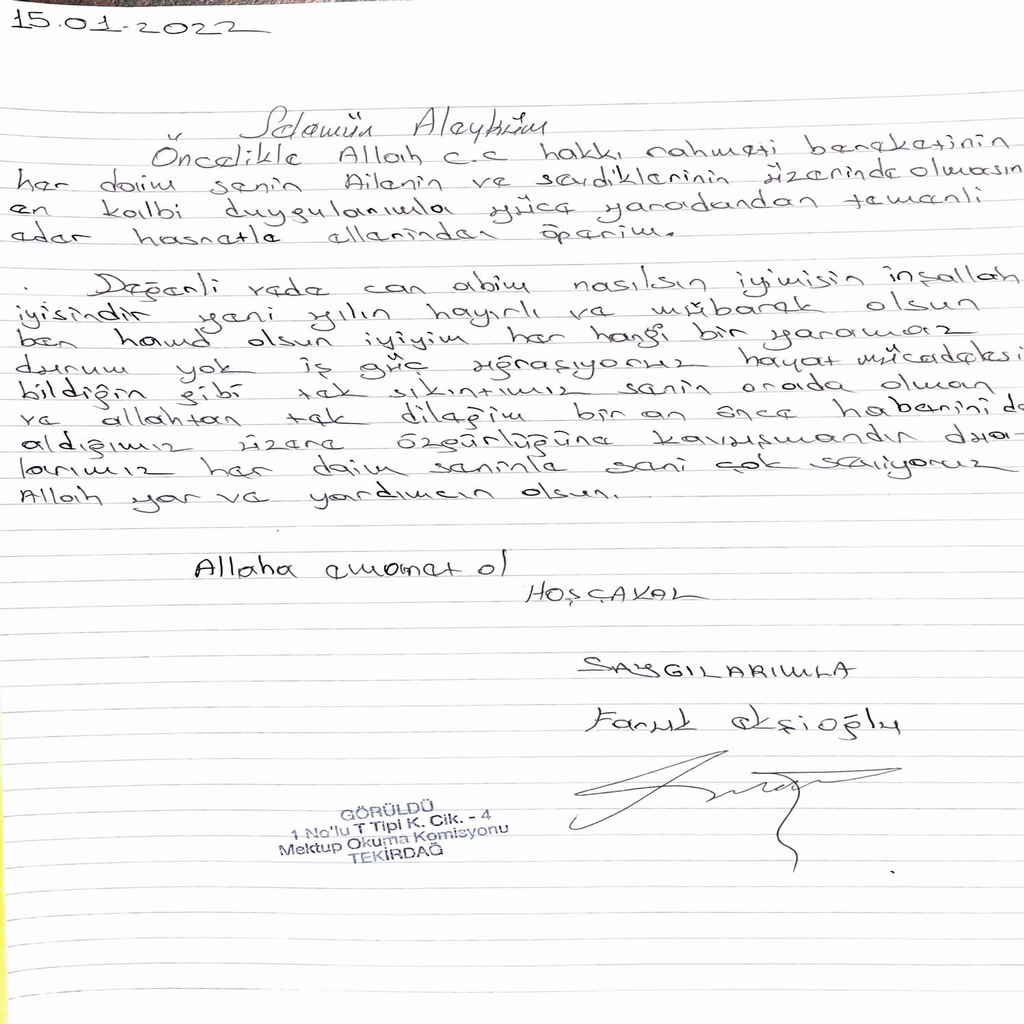 15.01.2022
Selamün Aleyküm
Öncelikle Allah c.c hakkı rahmeti bereketinin
her daim senin Ailenin ve sevdiklerinin üzerinde olmasın
en kalbi duygularımla yüce yaradandan temenli
eder hasretle ellerinden öperim.
Değerli vede can abim nasılsın iyimisin inşallah
iyisindir yeni yılın hayırlı ve mübarek olsun
ben hamd olsun iyiyim her hangi bir yaramaz
durum yok iş güç uğraşıyoruz hayat mücadelesi
bildiğin gibi tek sıkıntımız senin orada olman
ve allahtan tek dileğim bir an önce haberini de
aldığımız üzere özgürlüğüne kavuşmandır dua-
larımız her daim seninle seni çok seviyoruz
Allah yar ve yardımcın olsun.
Allaha emanet ol
HOŞÇAKAL
SAYGILARIMLA
Faruk
GÖRÜLDÜ
1 No'lu T Tipi K. Cik. - 4
Mektup Okuma Komisyonu
TEKİRDAĞ